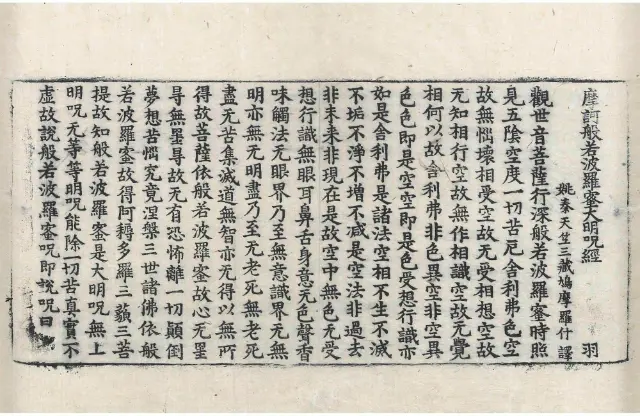 摩訶般若波羅蜜大明呪經 羽
姚秦天竺三藏鳩摩羅什譯
觀世音菩薩行深般若波羅蜜時照
見五陰空度一切苦厄舍利弗色空
故無惱壞相受空故无受相想空故
无知相行空故無作相識空故无覺
相何以故舍利弗非色異空非空異
色色即是空空即是色受想行識亦
如是舍利弗是諸法空相不生不滅
不垢不淨不增不减是空法非過去
非未来非現在是故空中無色无受
想行識無眼耳鼻舌身意无色聲香
味觸法无眼界乃至無意識界无無
明亦無无明盡乃至无老死無老死
盡无苦集滅道無智亦无得以無所
得故菩薩依般若波羅蜜故心无罣
㝵無罣㝵故无有恐怖離一切顛倒
夢想苦惱究竟涅槃三世諸佛依般
若波羅蜜故得阿耨多羅三藐三菩
提故知般若波羅蜜是大明呪無上
明呪无等等明呪能除一切苦真實不
虛故說般若波羅蜜呪即說呪曰